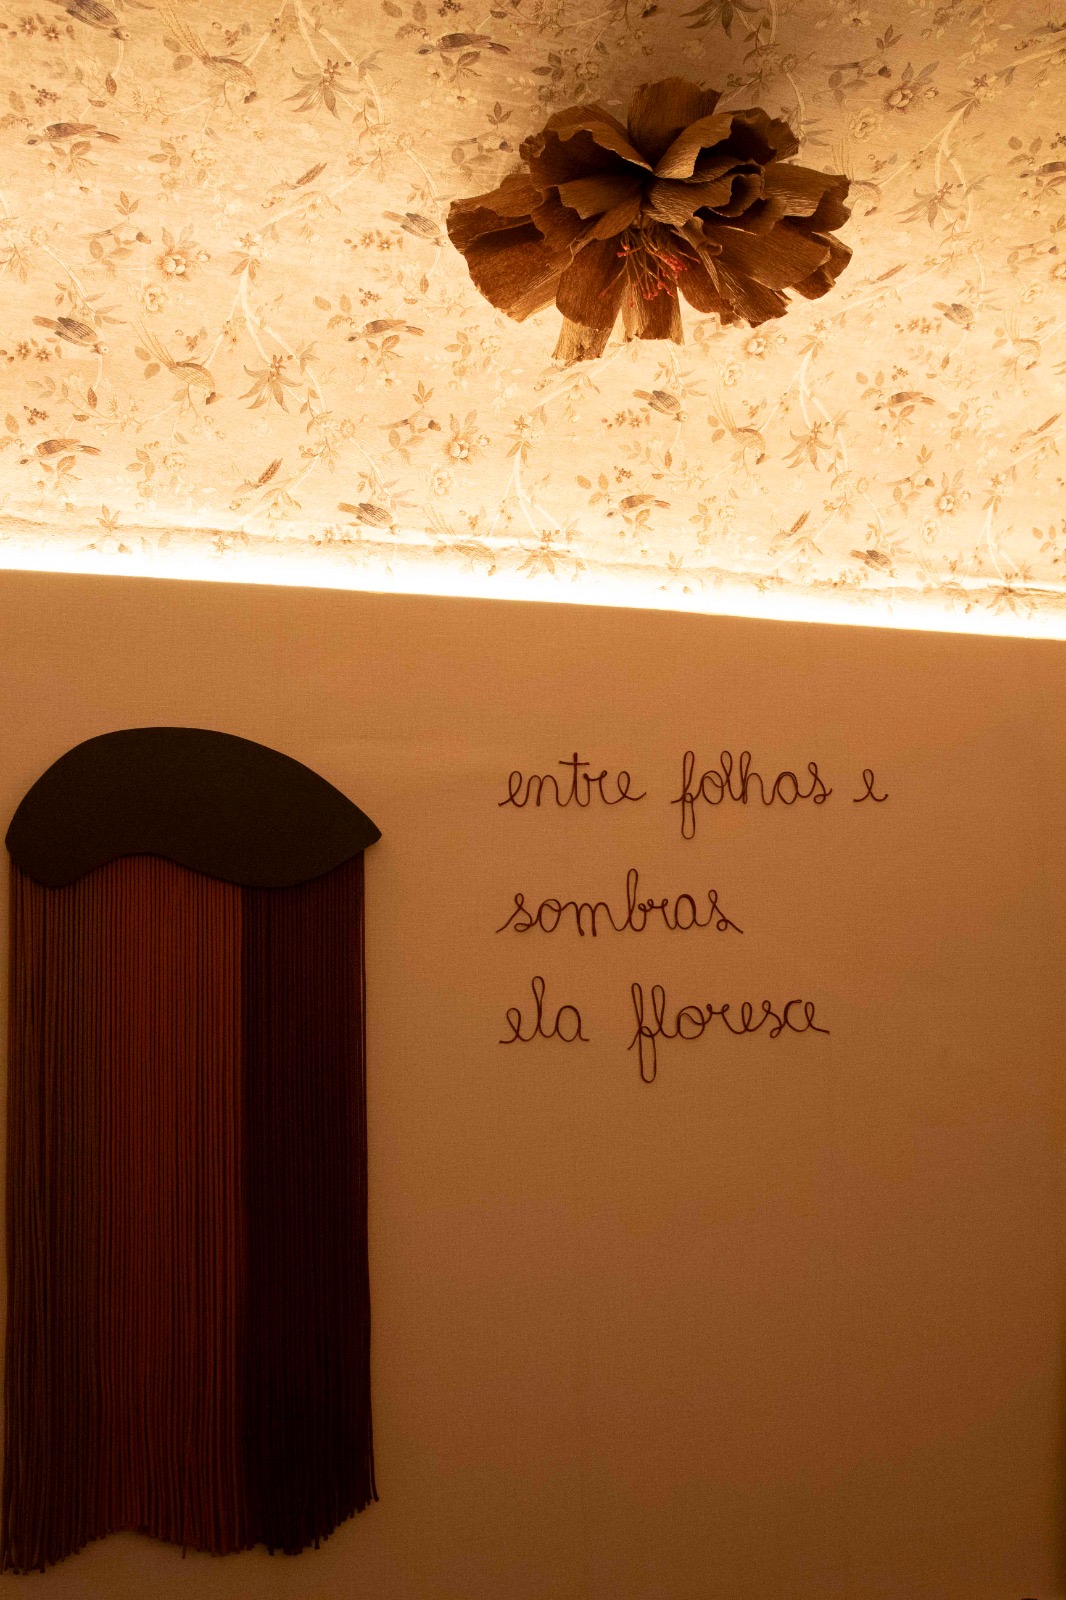 entre folhas e
sombras
ela floresce